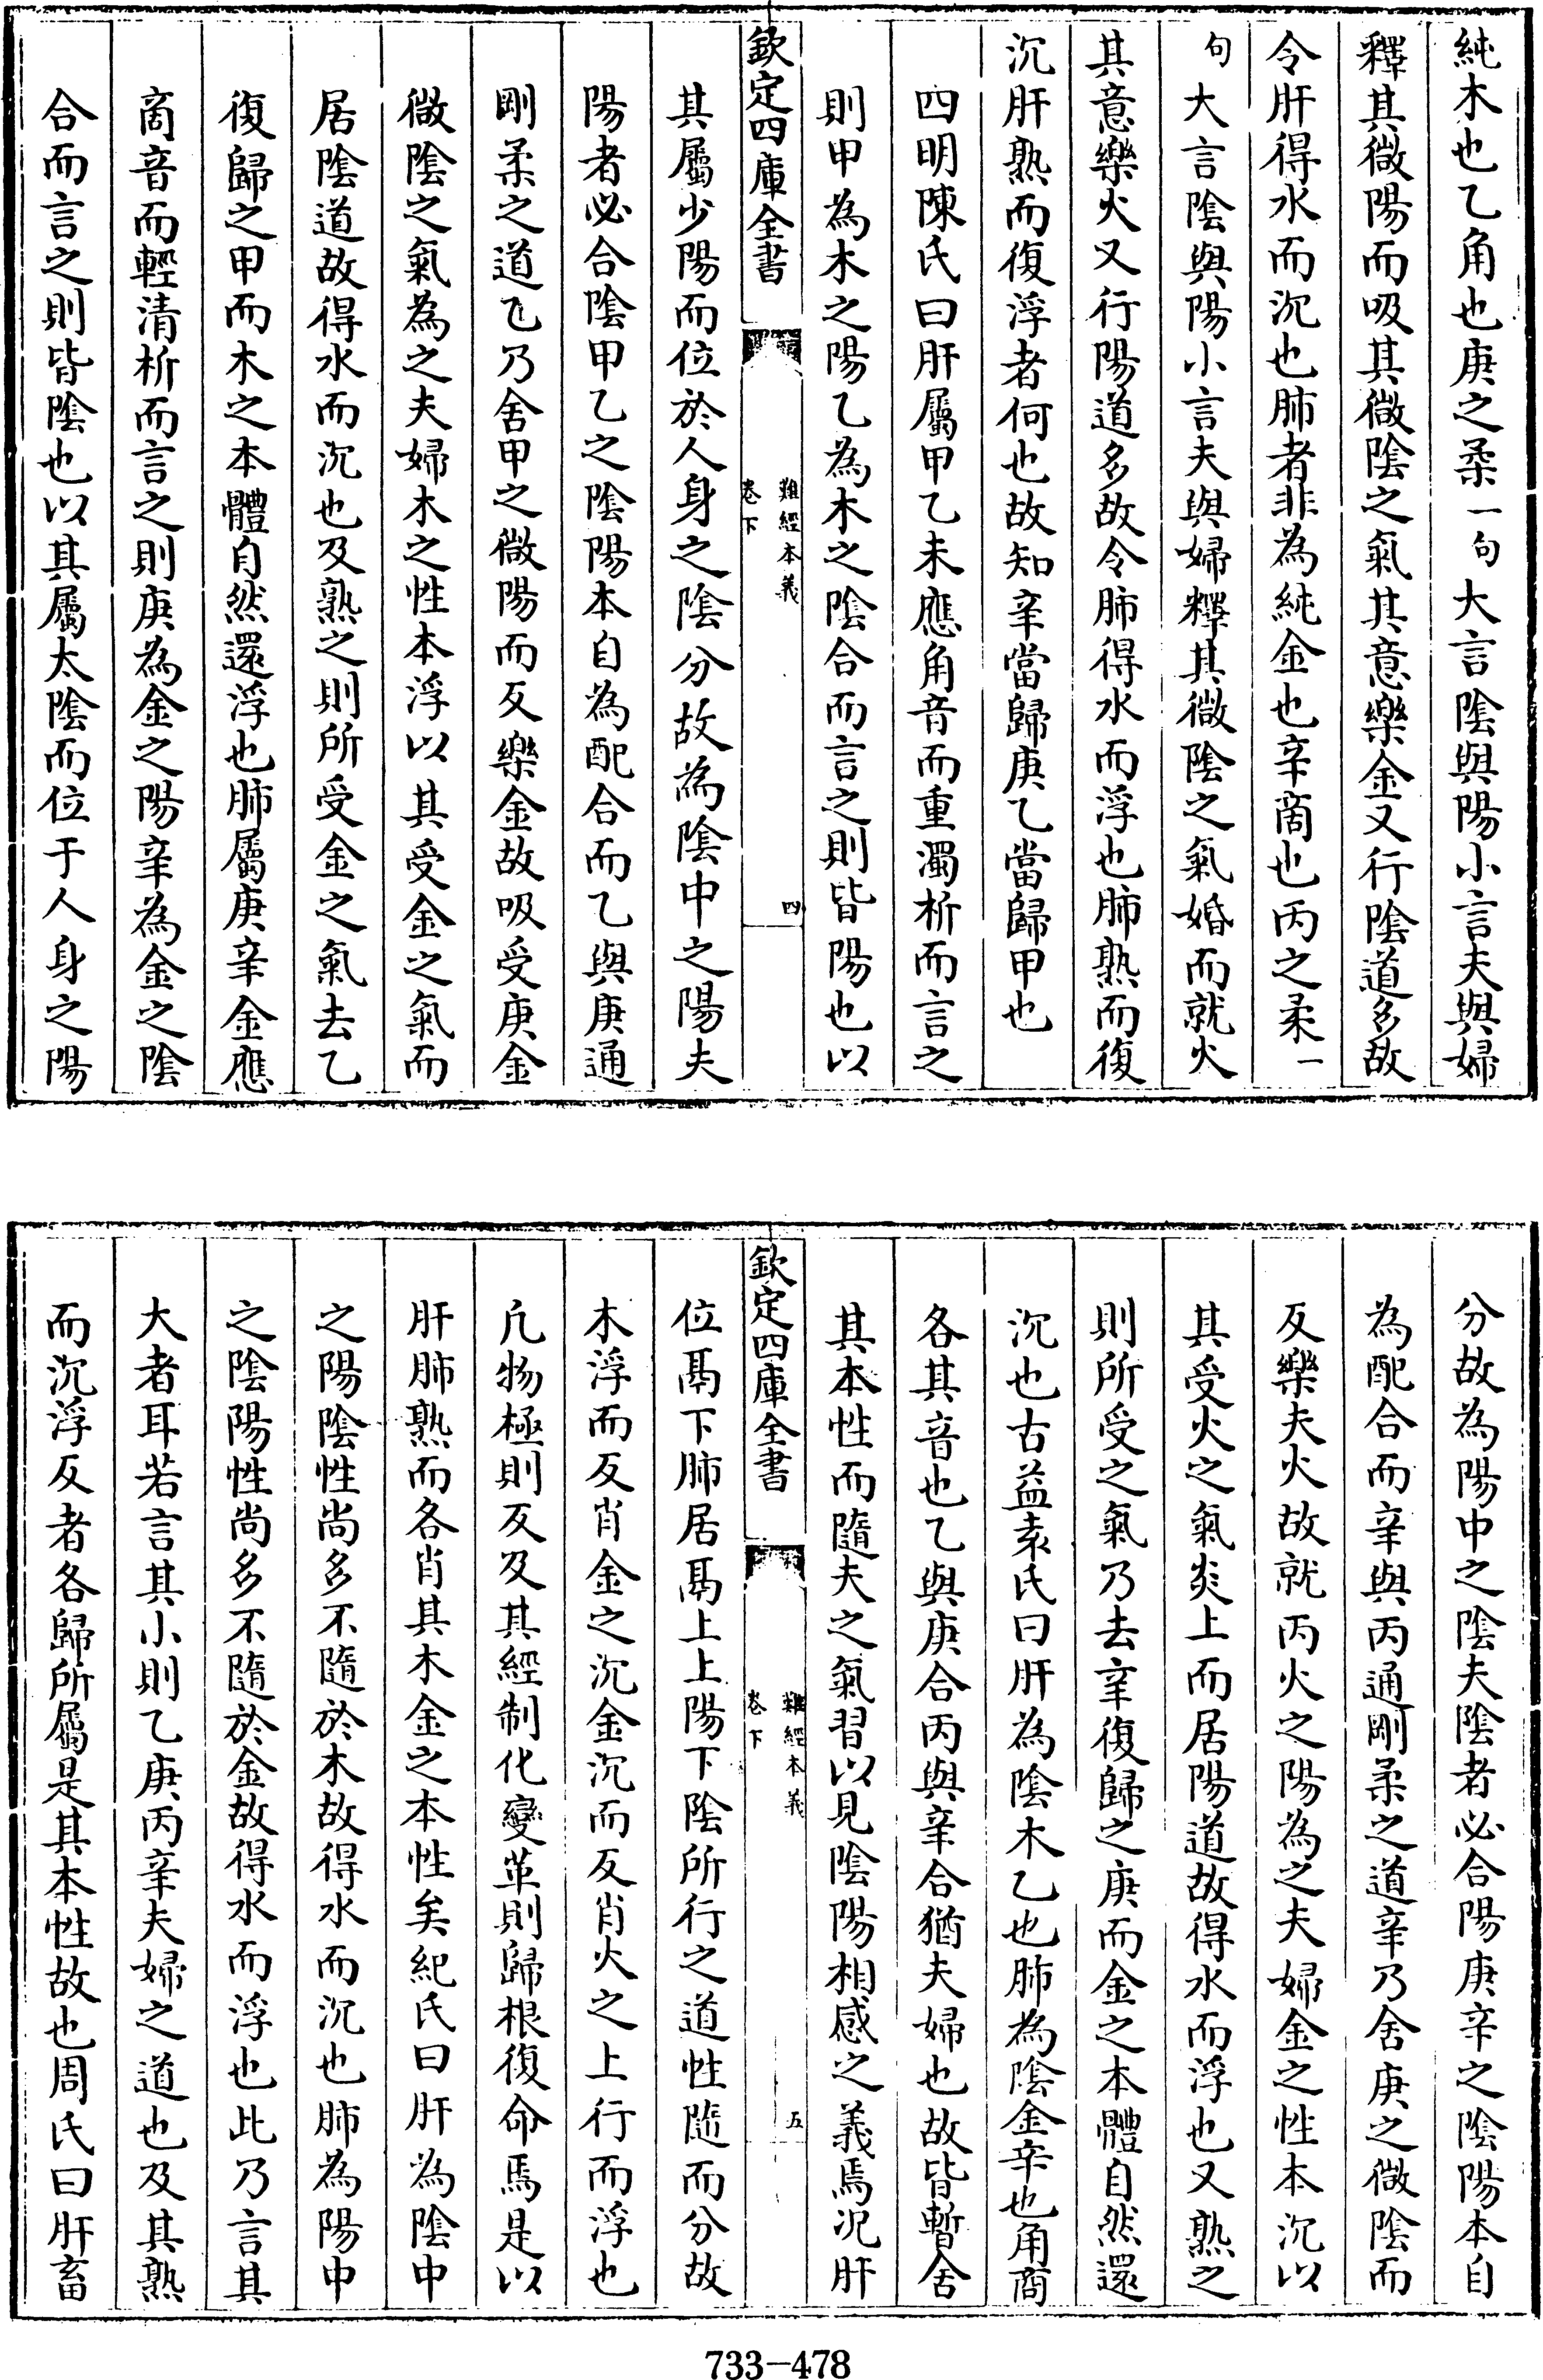 純木也乙角也庚之柔一句大言陰與陽小言夫與婦
釋其微陽而吸其微陰之氣其意樂金又行陰道多故
令肝得水而沉也肺者非為純金也辛商也丙之柔一
句大言陰與陽小言夫與婦釋其微陰之氣婚而就火
其意樂火又行陽道多故令肺得水而浮也肺熟而復
沉肝熟而復浮者何也故知辛當歸庚乙當歸甲也
四明陳氏曰肝屬甲乙木應角音而重濁析而言之
則甲為木之陽乙為木之陰合而言之則皆陽也以
欽定四庫全書
難經本義
卷下
四
其屬少陽而位於人身之陰分故為陰中之陽夫
陽者必合陰甲乙之陰陽本自為配合而乙與庚通
剛柔之道乙乃舍甲之微陽而反樂金故吸受庚金
微陰之氣為之夫婦木之性本浮以其受金之氣而
居陰道故得水而沉也及熟之則所受金之氣去乙
復歸之甲而木之本體自然還浮也肺屬庚辛金應
商音而輕清析而言之則庚為金之陽辛為金之陰
合而言之則皆陰也以其屬太陰而位于人身之陽
分故為陽中之陰夫陰者必合陽庚辛之陰陽本自
為配合而辛與丙通剛柔之道辛乃舍庚之微陰而
反樂夫火故就丙火之陽為之夫婦金之性本沉以
其受火之氣炎上而居陽道故得水而浮也又熟之
則所受之氣乃去辛復歸之庚而金之本體自然還
沉也古益袁氏曰肝為陰木乙也肺為陰金辛也角商
各其音也乙與庚合丙與辛合猶夫婦也故皆暫舍
其本性而隨夫之氣習以見陰陽相感之義焉況肝
欽定四庫全書
難經本義
卷下
五
位鬲下肺居鬲上上陽下陰所行之道性隨而分故
木浮而反肖金之沉金沉而反肖火之上行而浮也
凡物極則反及其經制化變革則歸根復命焉是以
肝肺熟而各肖其木金之本性矣紀氏曰肝為陰中
之陽陰性尚多不隨於木故得水而沉也肺為陽中
之陰陽性尚多不隨於金故得水而浮也此乃言其
大者耳若言其小則乙庚丙辛夫婦之道也及其熟
而沉浮反者各歸所屬是其本性故也周氏曰肝畜
733-478